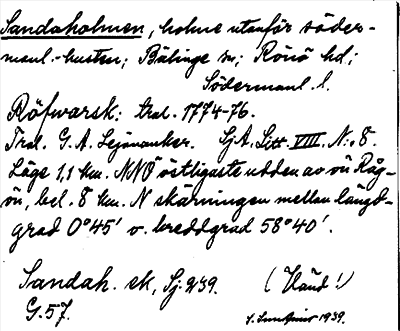 Sandaholmen, holme utanför söder-
manl.-kusten; Bälinge sn; Rönö hd;
Södermanl. l.
Röfwarsk: trol. 1774-76.
Trol. G. A. Lejonanker. SjA. Litt. VIII. N:o 8.
Läge 1,1 km. NNÖ östligaste udden av ön Råg-
ön, bel. 8 km. N skärningen mellan längd-
grad 0°45' o. breddgrad 58°40'.
Sandah. sk, Sj. 939. (Känd!)
G. 57.
1939.